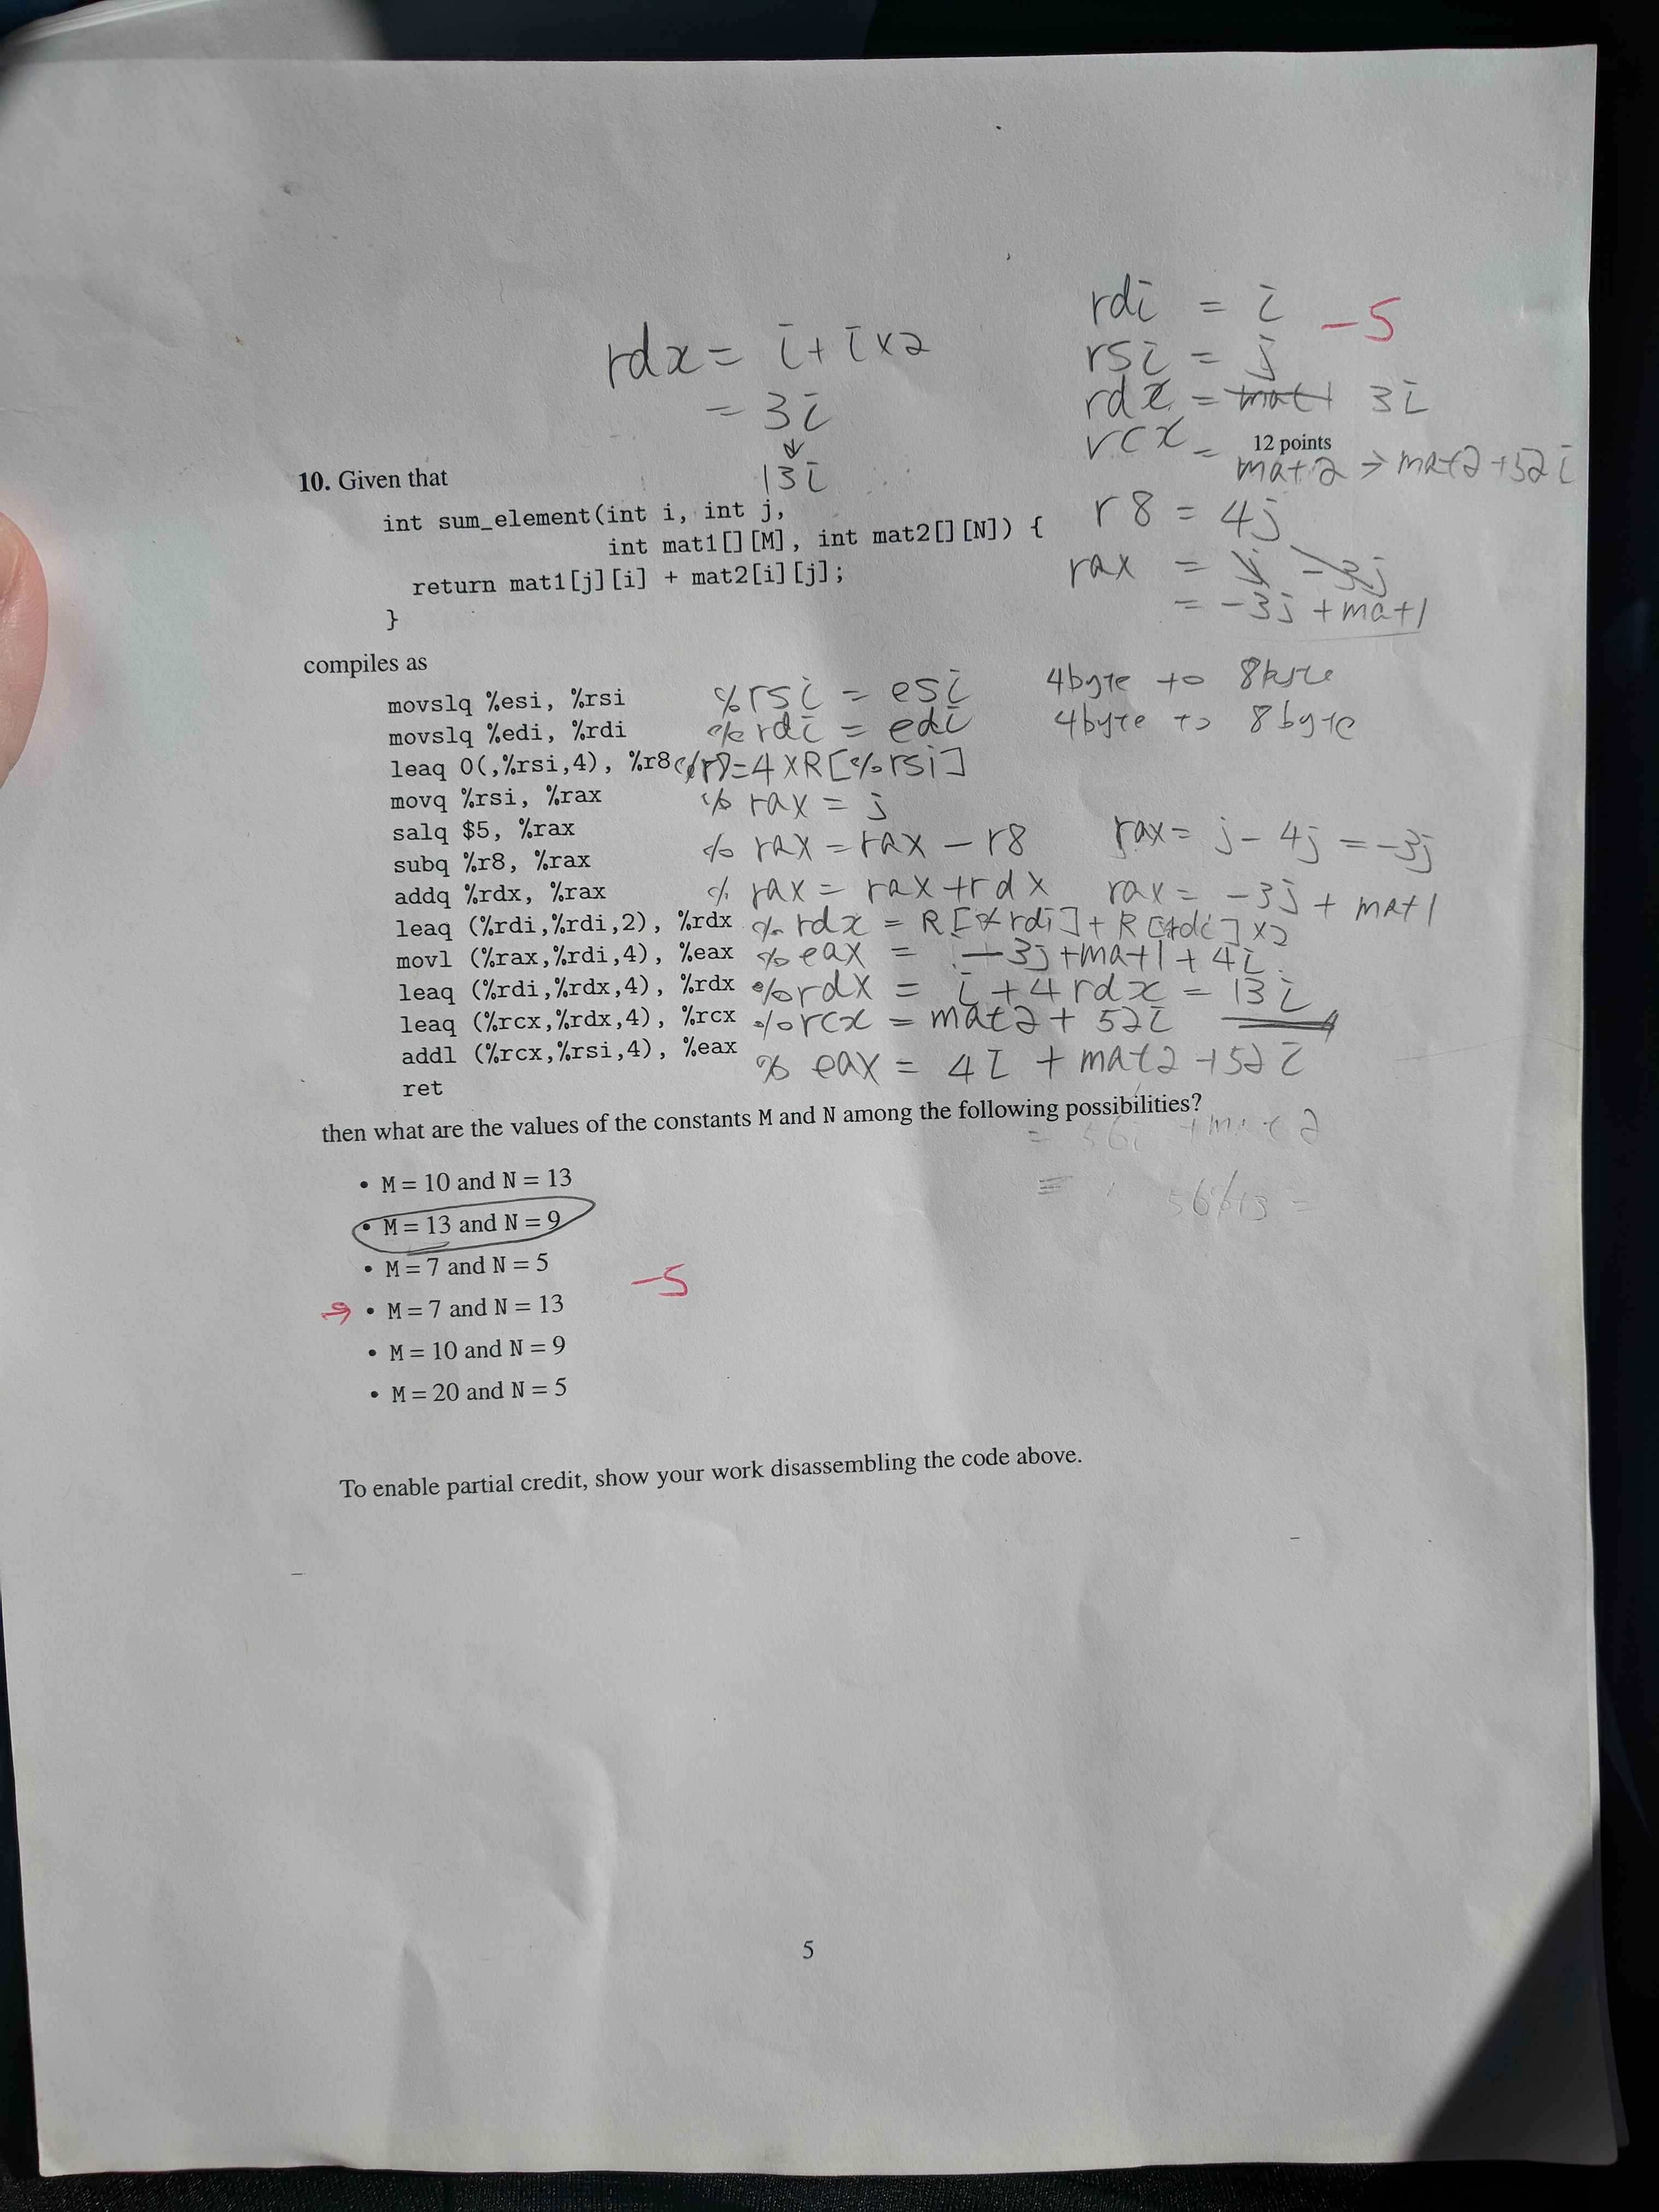 rdi = i -5
rdx = i + i x 2
rsi = j
= 3i
rdx = mat1 3i
↓
rcx = 12 points
mat2 → mat2 + 52i
13i
10. Given that
int sum_element(int i, int j,
r8 = 4j
int mat1[][M], int mat2[][N]) {
return mat1[j][i] + mat2[i][j];
rax = j -3j
}
= -3j + mat1
compiles as
movslq %esi, %rsi %rsi = esi 4byte to 8byte
movslq %edi, %rdi %rdi = edi 4byte to 8byte
leaq 0(,%rsi,4), %r8 %r8=4XR[%rsi]
movq %rsi, %rax % rax = j
salq $5, %rax
subq %r8, %rax % rax = rax - r8 rax = j - 4j = -3j
addq %rdx, %rax % rax = rax + rdx rax = -3j + mat1
leaq (%rdi,%rdi,2), %rdx % rdx = R[%rdi] + R[%rdi] x2
movl (%rax,%rdi,4), %eax % eax = -3j + mat1 + 4i
leaq (%rdi,%rdx,4), %rdx %rdx = i + 4 rdx = 13i
leaq (%rcx,%rdx,4), %rcx %rcx = mat2 + 52i
addl (%rcx,%rsi,4), %eax % eax = 4i + mat2 + 52i
ret
then what are the values of the constants M and N among the following possibilities?
= 56i + mat2
• M = 10 and N = 13
• M = 13 and N = 9
56/13 =
• M = 7 and N = 5
-5
→ • M = 7 and N = 13
• M = 10 and N = 9
• M = 20 and N = 5
To enable partial credit, show your work disassembling the code above.
5